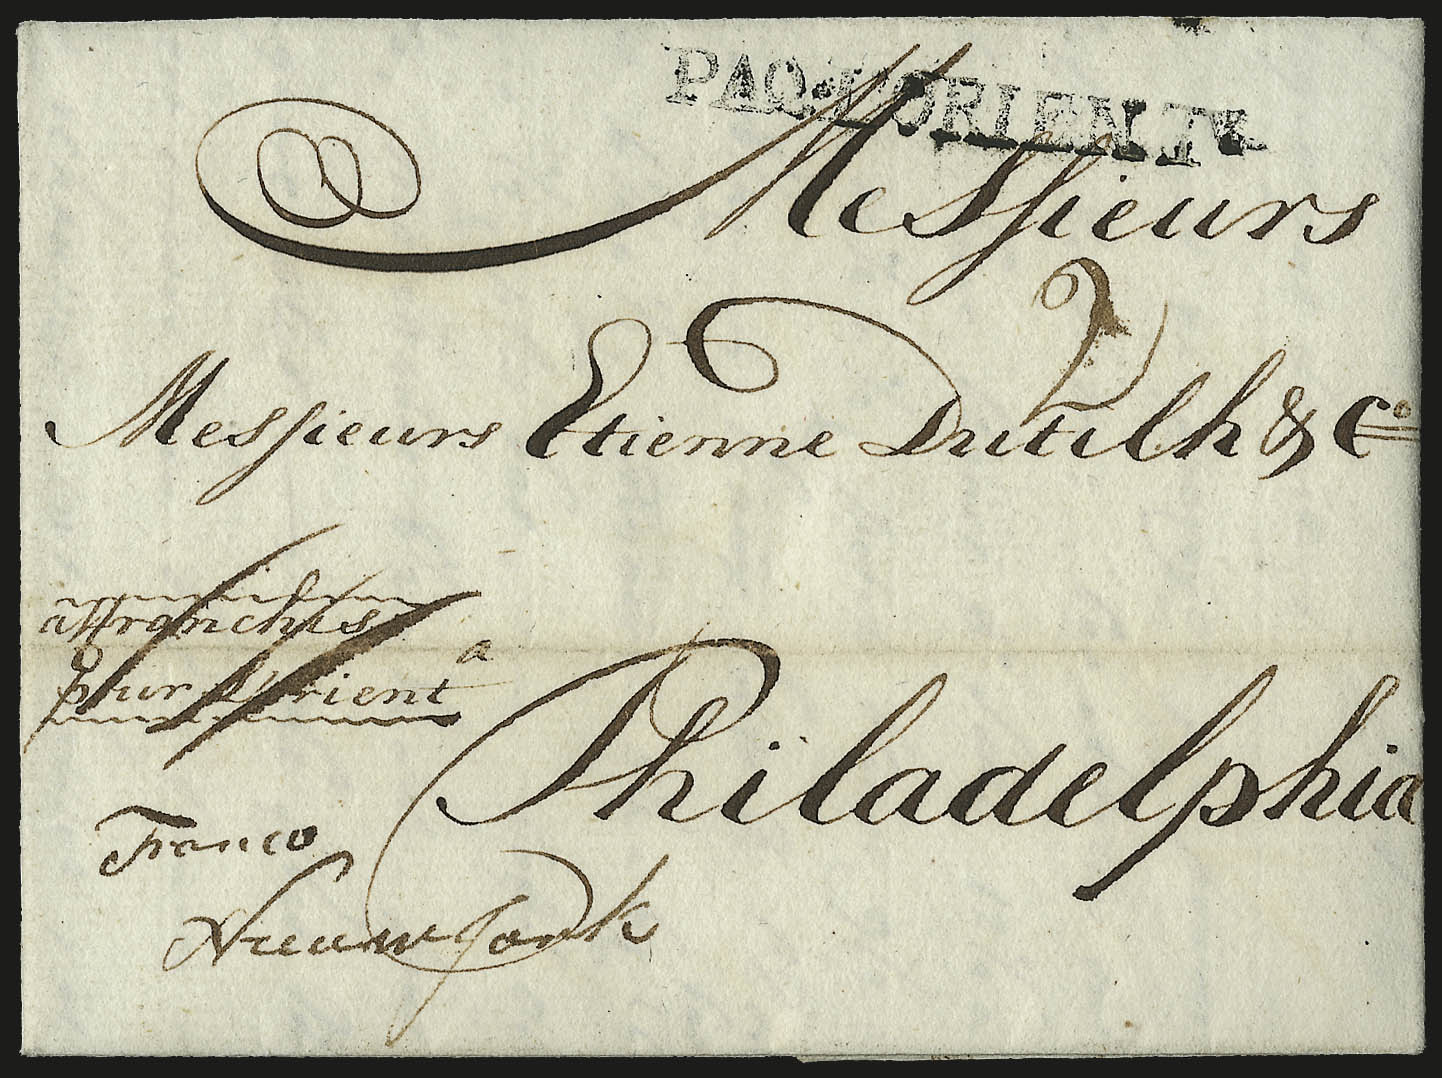 PAQ·L'ORIENT
Messieurs
2
Messieurs Etienne Dutilh & Co
affranchis
pour L'Orient a
Philadelphia
Franco
Nieuw Jork